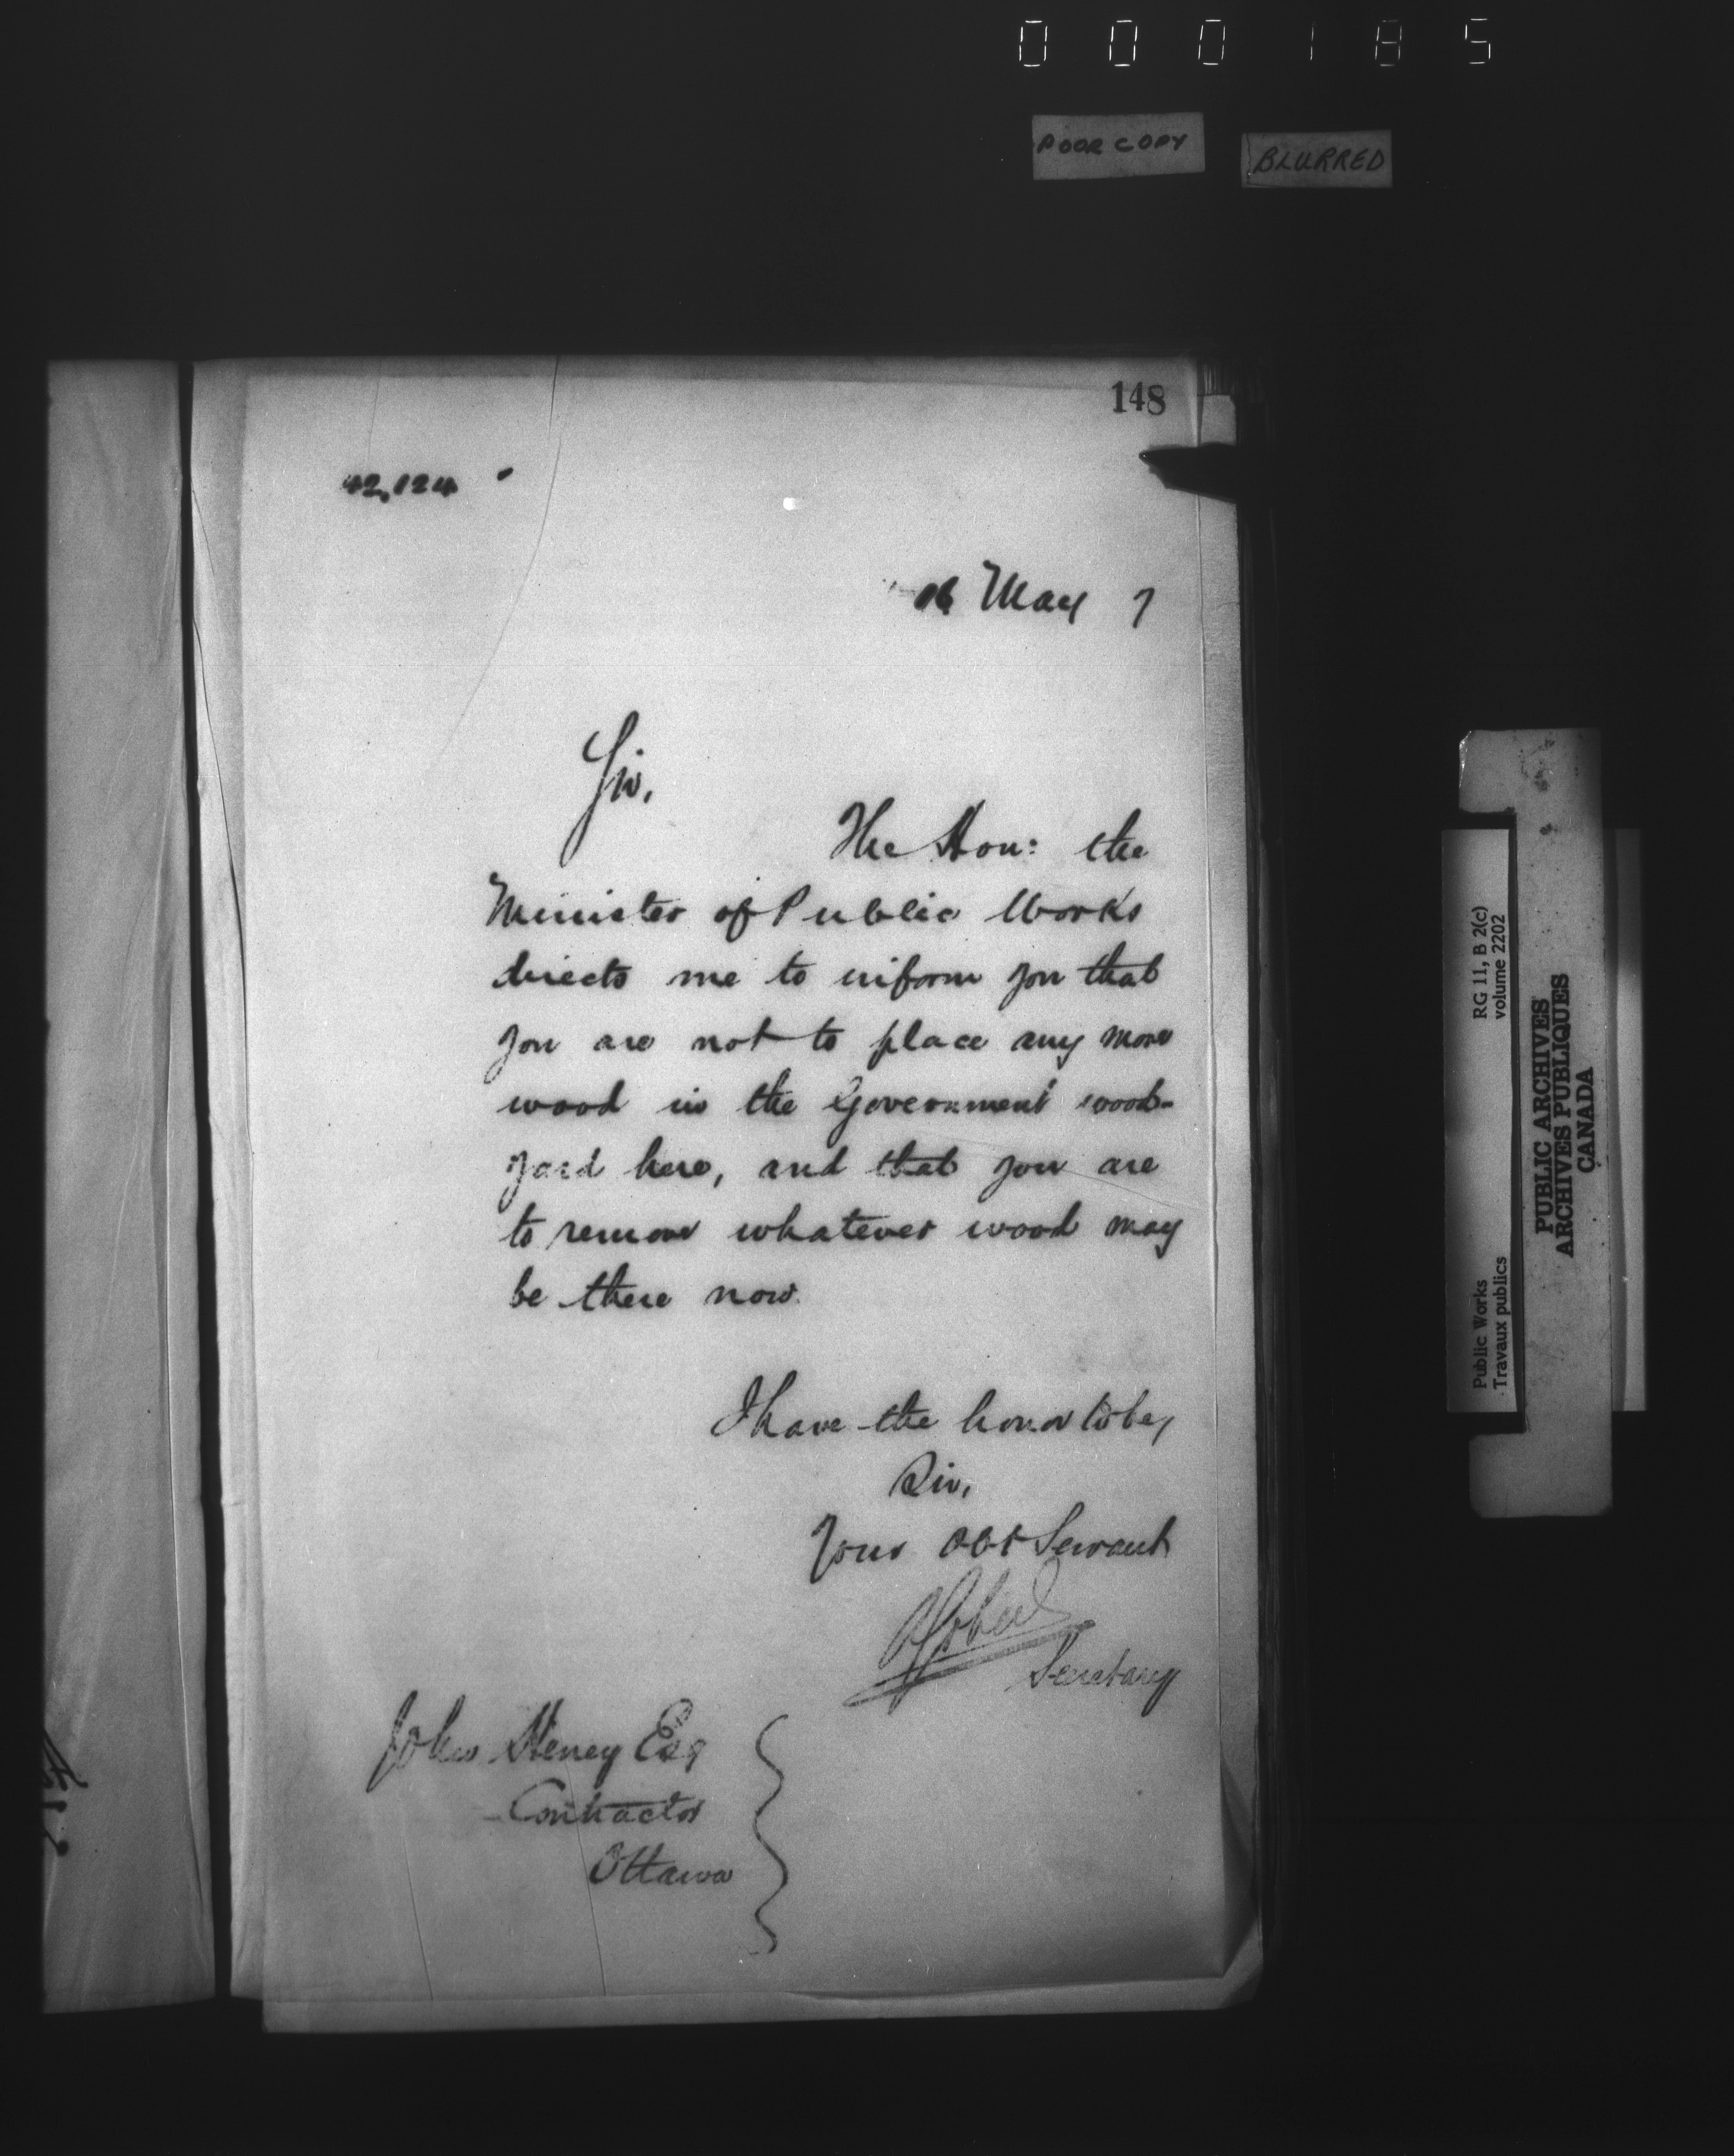 000185
POOR COPY
BLURRED
148
42,124
16 May 7
Sir,
The Hon: the
Minister of Public Works
directs me to inform you that
you are not to place any more
wood in the Government wood-
yard here, and that you are
to remove whatever wood may
be there now.
I have the honor to be,
Sir,
Your Obt Servant
Secretary
John Heney Esq
Contractor
Ottawa
RG 11, B 2(c)
volume 2202
Public Works
Travaux publics
PUBLIC ARCHIVES
ARCHIVES PUBLIQUES
CANADA